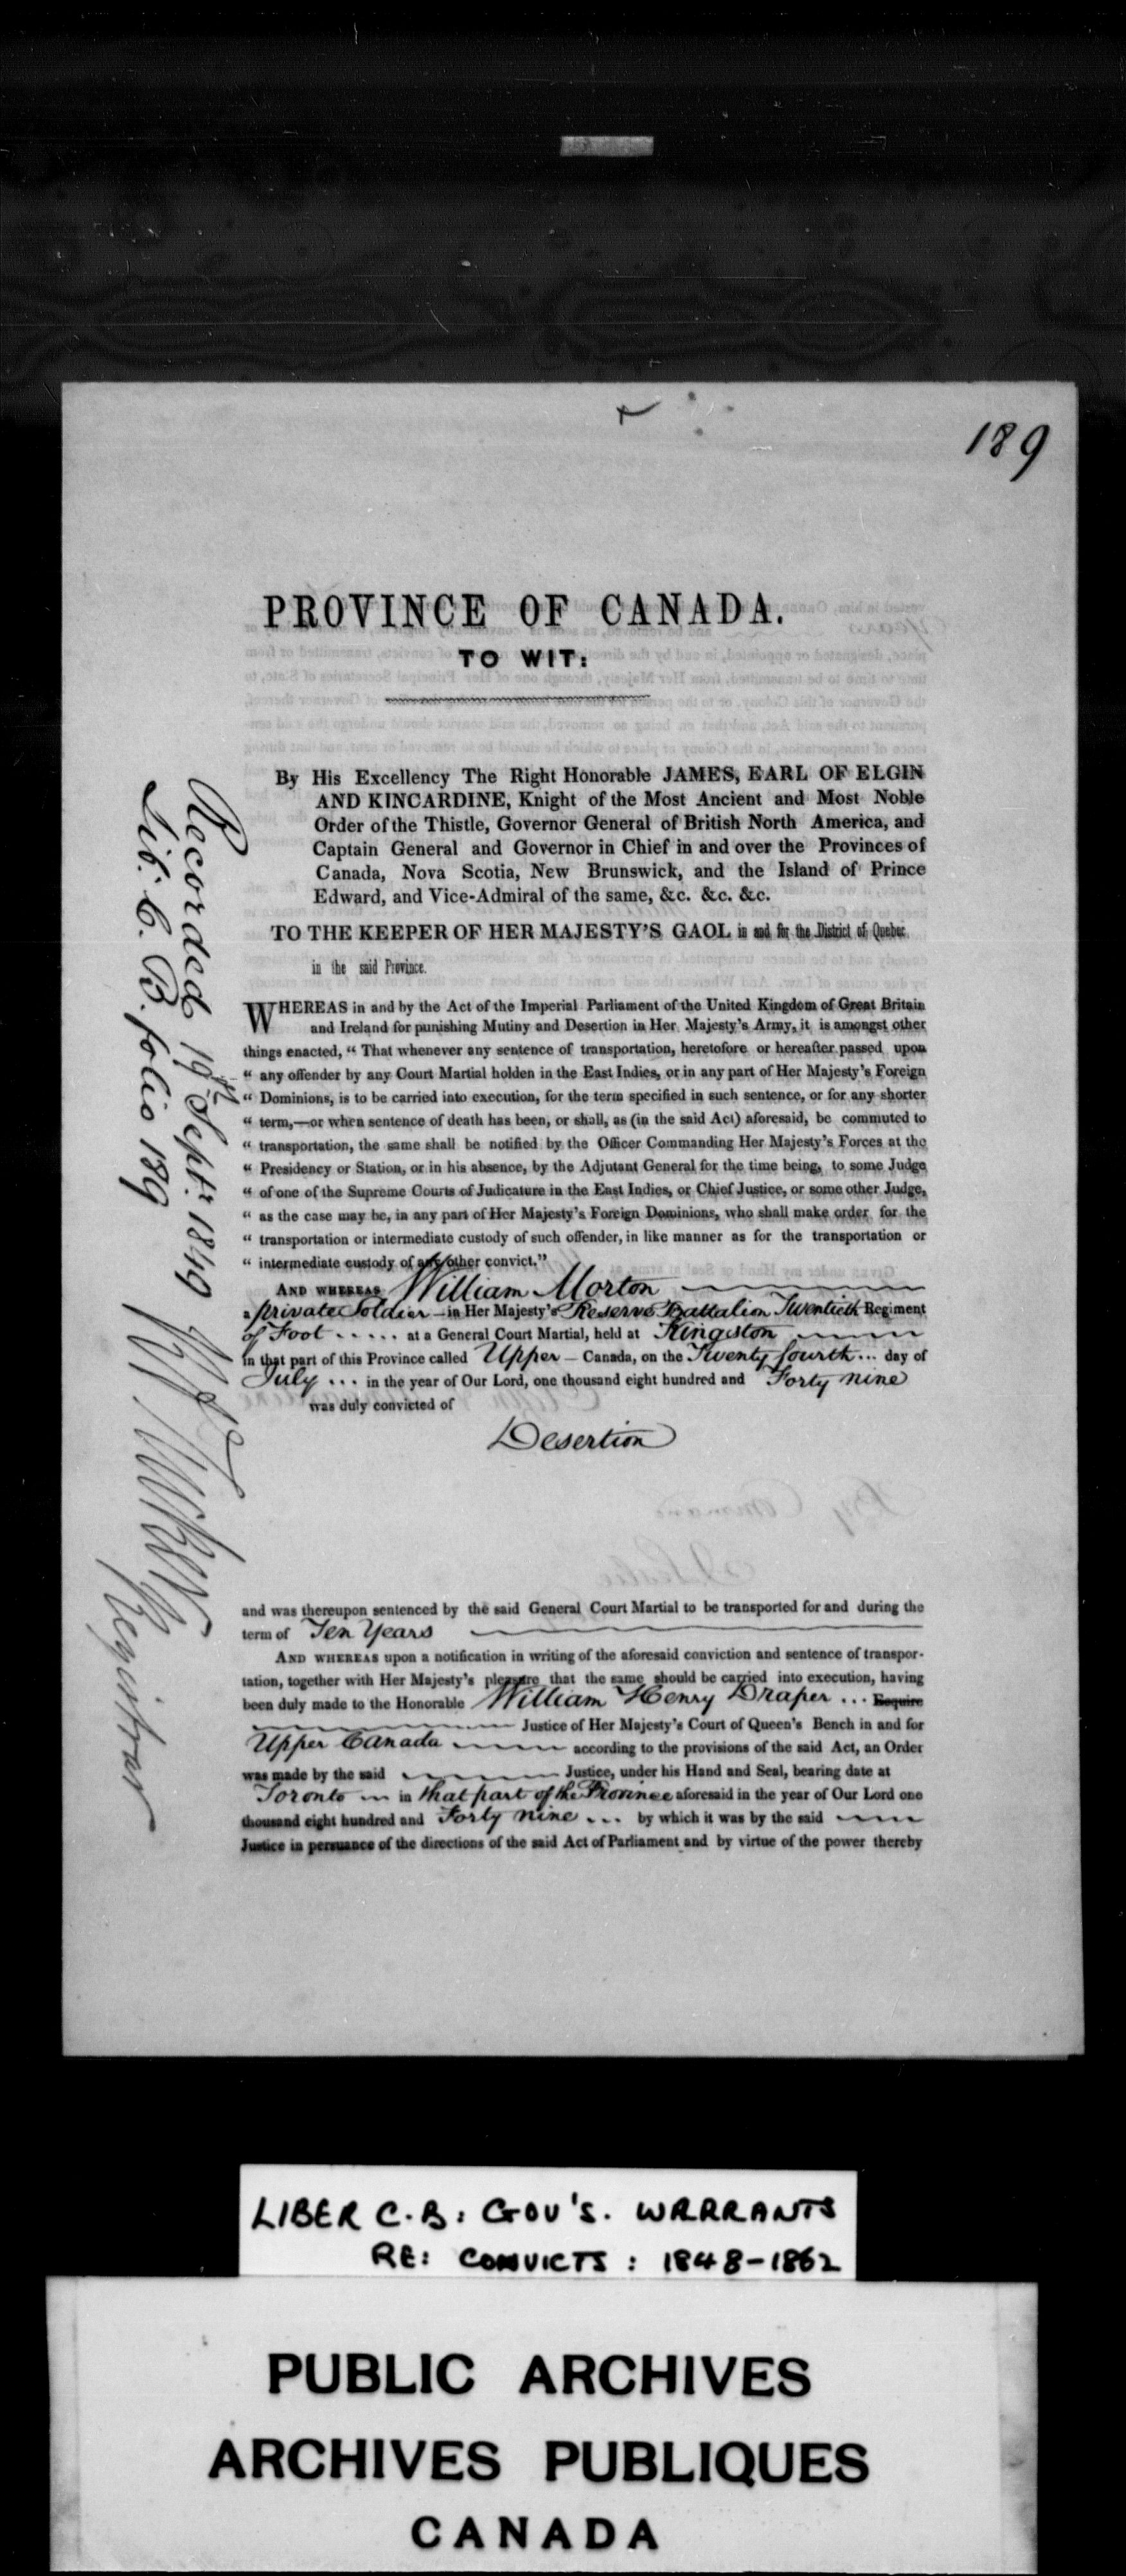 189
PROVINCE OF CANADA.
TO WIT:
By His Excellency The Right Honorable JAMES, EARL OF ELGIN
AND KINCARDINE, Knight of the Most Ancient and Most Noble
Order of the Thistle, Governor General of British North America, and
Captain General and Governor in Chief in and over the Provinces of
Canada, Nova Scotia, New Brunswick, and the Island of Prince
Edward, and Vice-Admiral of the same, &c. &c. &c.
TO THE KEEPER OF HER MAJESTY'S GAOL in and for the District of Quebec
in the said Province.
WHEREAS in and by the Act of the Imperial Parliament of the United Kingdom of Great Britain
and Ireland for punishing Mutiny and Desertion in Her Majesty's Army, it is amongst other
things enacted, “ That whenever any sentence of transportation, heretofore or hereafter passed upon
“ any offender by any Court Martial holden in the East Indies, or in any part of Her Majesty's Foreign
“ Dominions, is to be carried into execution, for the term specified in such sentence, or for any shorter
“ term,—or when sentence of death has been, or shall, as (in the said Act) aforesaid, be commuted to
“ transportation, the same shall be notified by the Officer Commanding Her Majesty's Forces at the
“ Presidency or Station, or in his absence, by the Adjutant General for the time being, to some Judge
“ of one of the Supreme Courts of Judicature in the East Indies, or Chief Justice, or some other Judge,
“ as the case may be, in any part of Her Majesty's Foreign Dominions, who shall make order for the
“ transportation or intermediate custody of such offender, in like manner as for the transportation or
“ intermediate custody of any other convict.”
AND WHEREAS William Morton
a private Soldier — in Her Majesty's Reserve Battalion Twentieth Regiment
of Foot ..... at a General Court Martial, held at Kingston
in that part of this Province called Upper — Canada, on the Twenty fourth ... day of
July ... in the year of Our Lord, one thousand eight hundred and Forty nine
was duly convicted of
Desertion
and was thereupon sentenced by the said General Court Martial to be transported for and during the
term of Ten Years
AND WHEREAS upon a notification in writing of the aforesaid conviction and sentence of transpor-
tation, together with Her Majesty's pleasure that the same should be carried into execution, having
been duly made to the Honorable William Henry Draper ... Esquire
Justice of Her Majesty's Court of Queen's Bench in and for
Upper Canada according to the provisions of the said Act, an Order
was made by the said Justice, under his Hand and Seal, bearing date at
Toronto in that part of the Province aforesaid in the year of Our Lord one
thousand eight hundred and Forty nine ... by which it was by the said
Justice in persuance of the directions of the said Act of Parliament and by virtue of the power thereby
Recorded 19th Septr. 1849
Lib: C. B. folio 189
Registrar
LIBER C.B: GOV'S. WARRANTS
RE: CONVICTS: 1848-1862
PUBLIC ARCHIVES
ARCHIVES PUBLIQUES
CANADA